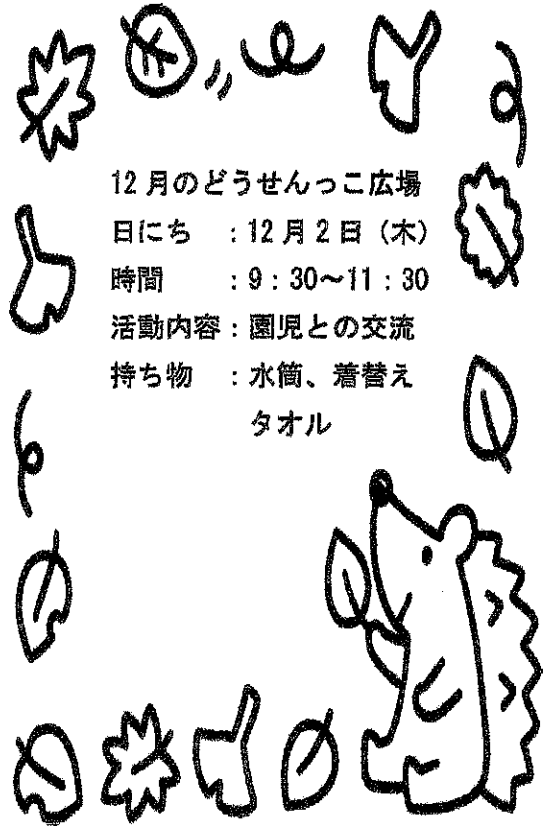 12月のどうせんっこ広場
日にち　：12月2日（木）
時間　　：9：30～11：30
活動内容：園児との交流
持ち物　：水筒、着替え
タオル